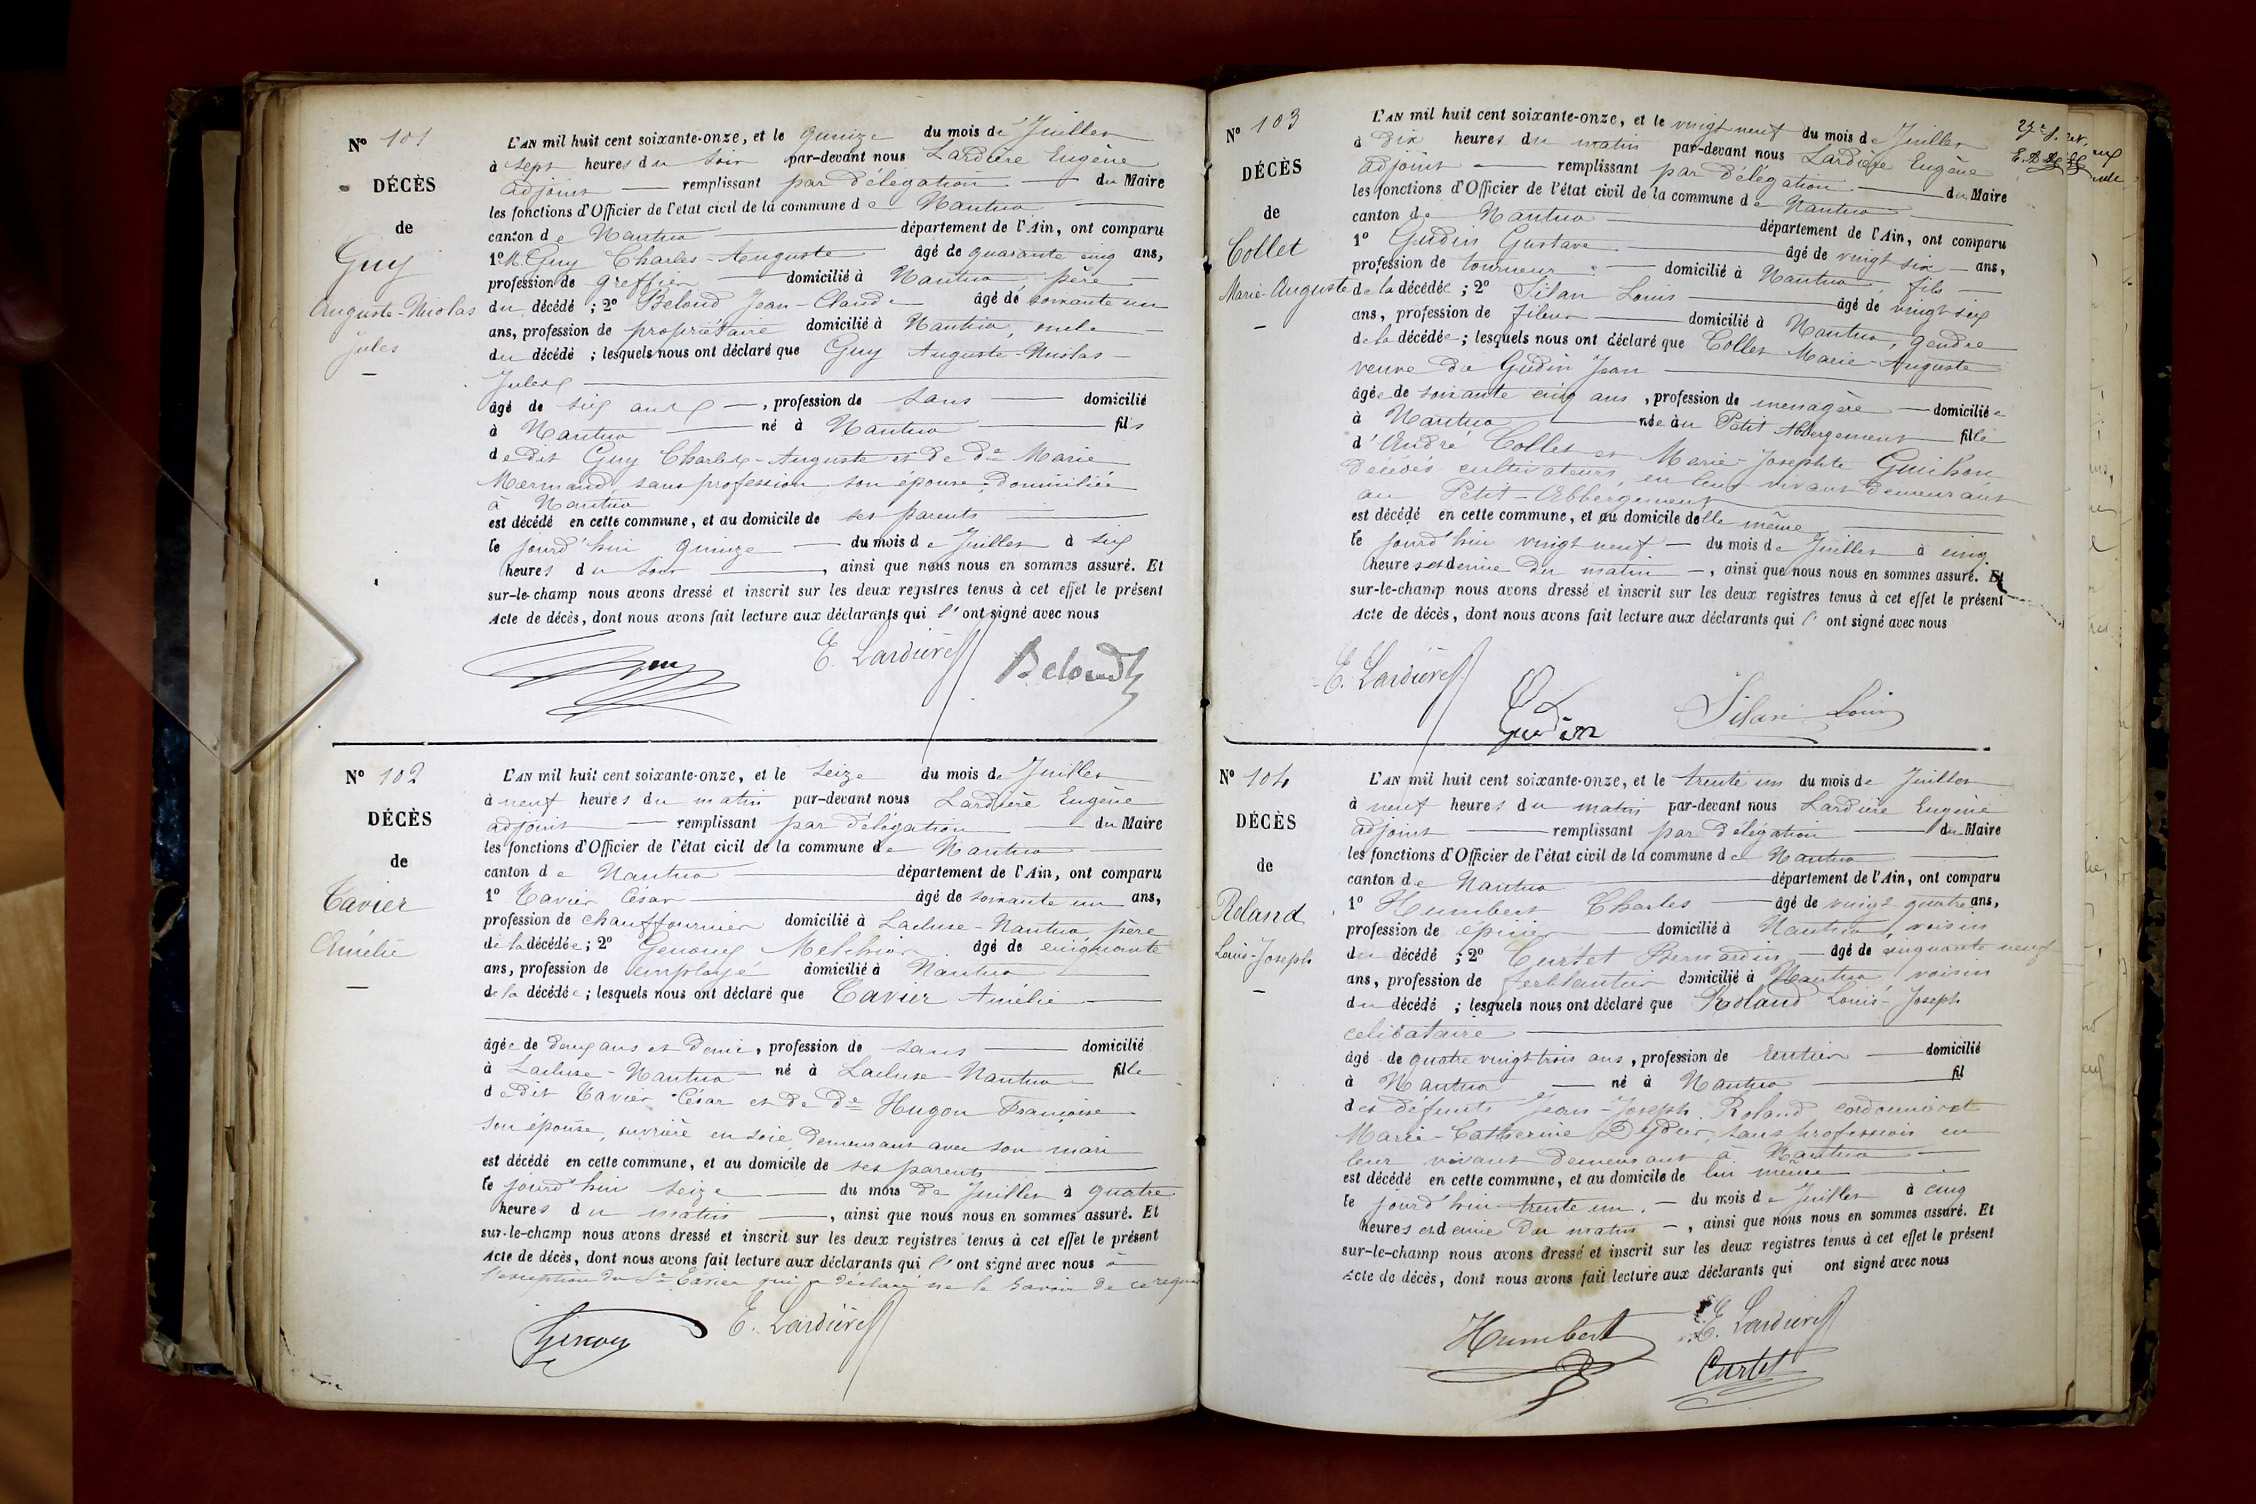 N° 101
DÉCÈS
de
Guy
Auguste-Nicolas
Jules
L'AN mil huit cent soixante-onze, et le quinze du mois de Juillet
à sept heures du soir par-devant nous Lardière Eugène
adjoint remplissant par délégation du Maire
les fonctions d'Officier de l'état civil de la commune de Nantua
canton de Nantua département de l'Ain, ont comparu
1° M. Guy Charles-Auguste âgé de quarante cinq ans,
profession de greffier domicilié à Nantua, père
du décédé ; 2° Beloud Jean-Claude âgé de soixante un
ans, profession de propriétaire domicilié à Nantua, oncle
du décédé ; lesquels nous ont déclaré que Guy Auguste-Nicolas
Jules
âgé de six ans, profession de sans domicilié
à Nantua né à Nantua fils
de dit Guy Charles-Auguste et de de Marie
Mermand, sans profession son épouse, domiciliée
à Nantua
est décédé en cette commune, et au domicile de ses parents
le jourd'hui quinze du mois de Juillet à six
heures du soir, ainsi que nous nous en sommes assuré. Et
sur-le-champ nous avons dressé et inscrit sur les deux registres tenus à cet effet le présent
Acte de décès, dont nous avons fait lecture aux déclarants qui l'ont signé avec nous
Guy E. Lardière Beloud
N° 102
DÉCÈS
de
Tavier
Amélie
L'AN mil huit cent soixante-onze, et le seize du mois de Juillet
à neuf heures du matin par-devant nous Lardière Eugène
adjoint remplissant par délégation du Maire
les fonctions d'Officier de l'état civil de la commune de Nantua
canton de Nantua département de l'Ain, ont comparu
1° Tavier César âgé de soixante un ans,
profession de chauffournier domicilié à Lacluse-Nantua, père
de la décédée ; 2° Genoux Melchior âgé de cinquante
ans, profession de employé domicilié à Nantua
de la décédée ; lesquels nous ont déclaré que Tavier Amélie
âgée de deux ans et demi, profession de sans domicilié
à Lacluse-Nantua né à Lacluse-Nantua fille
de dit Tavier César et de de Hugon Françoise
son épouse, ouvrière en soie, demeurant avec son mari
est décédé en cette commune, et au domicile de ses parents
le jourd'hui seize du mois de Juillet à quatre
heures du matin, ainsi que nous nous en sommes assuré. Et
sur-le-champ nous avons dressé et inscrit sur les deux registres tenus à cet effet le présent
Acte de décès, dont nous avons fait lecture aux déclarants qui l'ont signé avec nous à
l'exception du Sr Tavier qui a déclaré ne le savoir de ce requis
Genoux E. Lardière
N° 103
DÉCÈS
de
Collet
Marie-Auguste
L'AN mil huit cent soixante-onze, et le vingt neuf du mois de Juillet
à dix heures du matin par-devant nous Lardière Eugène
adjoint remplissant par délégation du Maire
les fonctions d'Officier de l'état civil de la commune de Nantua
canton de Nantua département de l'Ain, ont comparu
1° Gudin Gustave âgé de vingt six ans,
profession de tourneur domicilié à Nantua, fils
de la décédée ; 2° Silan Louis âgé de vingt six
ans, profession de fileur domicilié à Nantua, gendre
de la décédée ; lesquels nous ont déclaré que Collet Marie-Auguste
veuve de Gudin Jean
âgée de soixante cinq ans, profession de menagère domiciliée
à Nantua née au Petit Abbergement fille
d'André Collet et Marie-Josephte
décédés cultivateurs, en leur vivant demeurant
au Petit-Abbergement
est décédé en cette commune, et au domicile d'elle même
le jourd'hui vingt neuf du mois de Juillet à cinq
heures et demie du matin, ainsi que nous nous en sommes assuré. Et
sur-le-champ nous avons dressé et inscrit sur les deux registres tenus à cet effet le présent
Acte de décès, dont nous avons fait lecture aux déclarants qui l'ont signé avec nous
E. Lardière Gudin Silan Louis
N° 104
DÉCÈS
de
Roland
Louis-Joseph
L'AN mil huit cent soixante-onze, et le trente un du mois de Juillet
à neuf heures du matin par-devant nous Lardière Eugène
adjoint remplissant par délégation du Maire
les fonctions d'Officier de l'état civil de la commune de Nantua
canton de Nantua département de l'Ain, ont comparu
1° Humbert Charles âgé de vingt quatre ans,
profession de épicier domicilié à Nantua, voisin
du décédé ; 2° Curtet Bernardin âgé de cinquante neuf
ans, profession de ferblantier domicilié à Nantua, voisin
du décédé ; lesquels nous ont déclaré que Roland Louis-Joseph
celibataire
âgé de quatre vingt trois ans, profession de rentier domicilié
à Nantua né à Nantua fil
des défunts Jean-Joseph Roland cordonnier et
Marie-Catherine Dydier, sans profession en
leur vivant demeurant à Nantua
est décédé en cette commune, et au domicile de lui même
le jourd'hui trente un du mois de Juillet à cinq
heures et demie du matin, ainsi que nous nous en sommes assuré. Et
sur-le-champ nous avons dressé et inscrit sur les deux registres tenus à cet effet le présent
Acte de décès, dont nous avons fait lecture aux déclarants qui ont signé avec nous
Humbert E. Lardière
Curtet